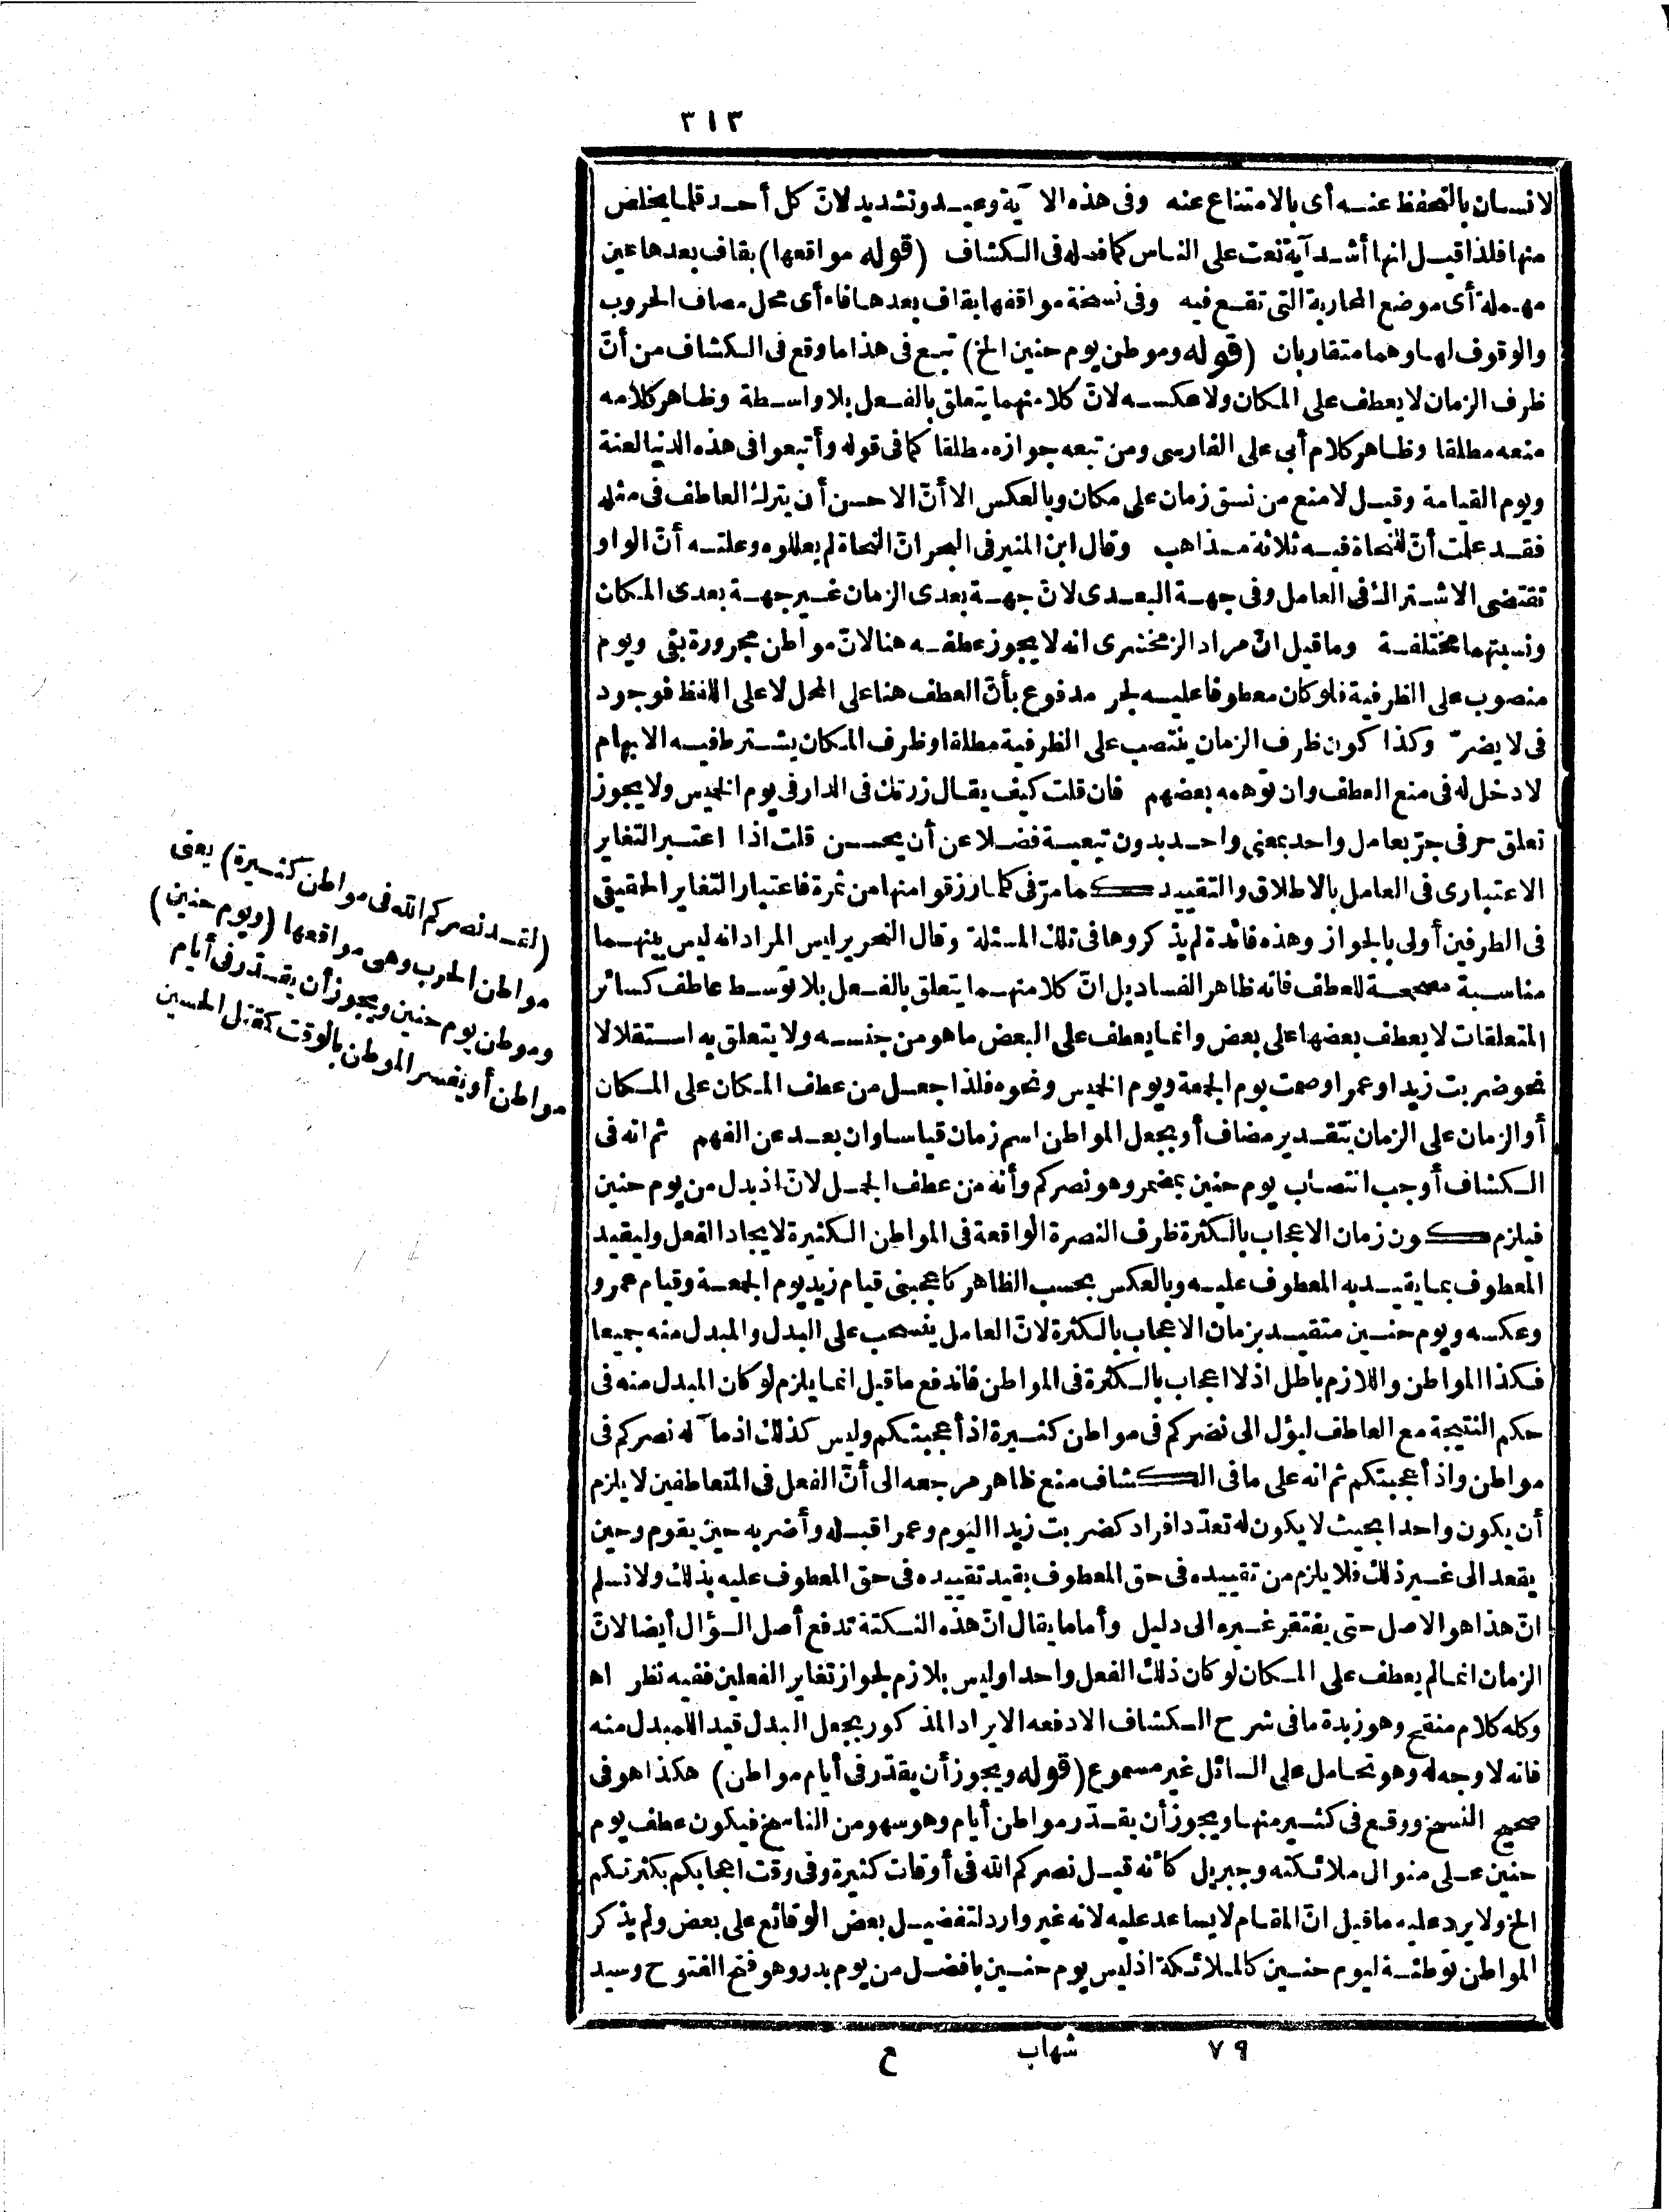 ٣١٣
لانسان بالتحفظ عنه أى بالامتناع عنه وفى هذه الآية وعيد وتشديد لانّ كل أحد قلما يخلص
منها فلذا قيل انها أشد آية نعت على الناس كما فصله فى الكشاف (قوله مواقعها) بقاف بعدها عين
مهملة أى موضع المحاربة التى تقع فيه وفى نسخة مواقفها بقاف بعدها فاء أى محل مصاف الحروب
والوقوف لها وهما متقاربان (قوله وموطن يوم حنين الخ) تبع فى هذا ما وقع فى الكشاف من أنّ
ظرف الزمان لا يعطف على المكان ولا عكسه لانّ كلا منهما يتعلق بالفعل بلا واسطة وظاهر كلامه
منعه مطلقا وظاهر كلام أبى على الفارسى ومن تبعه جوازه مطلقا كما فى قوله وأتبعوا فى هذه الدنيا لعنة
ويوم القيامة وقيل لا منع من نسق زمان على مكان وبالعكس الا أنّ الاحسن أن يترك العاطف فى مثله
فقد علمت أنّ للنحاة فيه ثلاثة مذاهب وقال ابن المنير فى البحر انّ النحاة لم يعللوه وعلته أنّ الواو
تقتضى الاشتراك فى العامل وفى جهة التعدى لانّ جهة تعدى الزمان غير جهة تعدى المكان
ونسبتهما مختلفة وما قيل انّ مراد الزمخشرى انه لا يجوز عطفه هنا لانّ مواطن مجرورة بفى ويوم
منصوب على الظرفية فلو كان معطوفا عليه لجر مدفوع بأنّ العطف هنا على المحل لا على اللفظ فوجود
فى لا يضرّ وكذا كون ظرف الزمان ينتصب على الظرفية مطلقا وظرف المكان يشترط فيه الابهام
لا دخل له فى منع العطف وان توهمه بعضهم فان قلت كيف يقال زرتك فى الدار فى يوم الخميس ولا يجوز
تعلق حرفى جرّ بعامل واحد بمعنى واحد بدون تبعية فضلا عن أن يحسن قلت اذا اعتبر التغاير
الاعتبارى فى العامل بالاطلاق والتقييد كما مرّ فى كلما رزقوا منها من ثمرة فاعتبار التغاير الحقيقى
فى الظرفين أولى بالجواز وهذه فائدة لم يذكروها فى تلك المسئلة وقال النحرير ليس المراد انه ليس بينهما
مناسبة مصححة للعطف فانه ظاهر الفساد بل انّ كلا منهما يتعلق بالفعل بلا توسط عاطف كسائر
المتعلقات لا يعطف بعضها على بعض وانما يعطف على البعض ما هو من جنسه ولا يتعلق به استقلالا
نحو ضربت زيدا وعمرا وصمت يوم الجمعة ويوم الخميس ونحوه فلذا جعل من عطف المكان على المكان
أو الزمان على الزمان بتقدير مضاف أو بجعل المواطن اسم زمان قياسا وان بعد عن الفهم ثم انه فى
الكشاف أوجب انتصاب يوم حنين بمضمر وهو نصركم وأنه من عطف الجمل لانّ اذ بدل من يوم حنين
فيلزم كون زمان الاعجاب بالكثرة ظرف النصرة الواقعة فى المواطن الكثيرة لايجاد الفعل وليقيد
المعطوف بما يقيد به المعطوف عليه وبالعكس بحسب الظاهر كاعجبنى قيام زيد يوم الجمعة وقيام عمرو
وعكسه ويوم حنين متقيد بزمان الاعجاب بالكثرة لانّ العامل ينسحب على البدل والمبدل منه جميعا
فكذا المواطن واللازم باطل اذ لا اعجاب بالكثرة فى المواطن فاندفع ما قيل انما يلزم لو كان المبدل منه فى
حكم النتيجة مع العاطف ليؤل الى نصركم فى مواطن كثيرة اذ أعجبتكم وليس كذلك اذ مآله نصركم فى
مواطن واذ أعجبتكم ثم انه على ما فى الكشاف منع ظاهر مرجعه الى أنّ الفعل فى المتعاطفين لا يلزم
أن يكون واحدا بحيث لا يكون له تعدّد افراد كضربت زيدا اليوم وعمرا قبله وأضربه حين يقوم وحين
يقعد الى غير ذلك فلا يلزم من تقييده فى حق المعطوف بقيد تقييده فى حق المعطوف عليه بذلك ولا نسلم
انّ هذا هو الاصل حتى يفتقر غيره الى دليل وأما ما يقال انّ هذه النكتة تدفع أصل السؤال أيضا لانّ
الزمان انما لم يعطف على المكان لو كان ذلك الفعل واحدا وليس بلازم لجواز تغاير الفعلين ففيه نظر اه
وكله كلام منقح وهو زبدة ما فى شرح الكشاف الا دفعه الايراد المذكور بجعل البدل قيدا للمبدل منه
فانه لا وجه له وهو تحامل على السائل غير مسموع (قوله ويجوز أن يقدّر فى أيام مواطن) هكذا هو فى
صحيح النسخ ووقع فى كثير منها ويجوز أن يقدّر مواطن أيام وهو سهو من الناسخ فيكون عطف يوم
حنين على منوال ملائكته وجبريل كأنه قيل نصركم الله فى أوقات كثيرة وفى وقت اعجابكم بكثرتكم
الخ ولا يرد عليه ما قيل انّ المقام لا يساعد عليه لانه غير وارد لتفضيل بعض الوقائع على بعض ولم يذكر
المواطن توطئة ليوم حنين كالملائكة اذ ليس يوم حنين بافضل من يوم بدر وهو فتح الفتوح وسيد
(لقد نصركم الله فى مواطن كثيرة) يعنى
مواطن الحرب وهى مواقعها (ويوم حنين)
وموطن يوم حنين ويجوز أن يقدّر فى أيام
مواطن أو يفسر الموطن بالوقت كمقتل الحسين
٧٩ شهاب ع